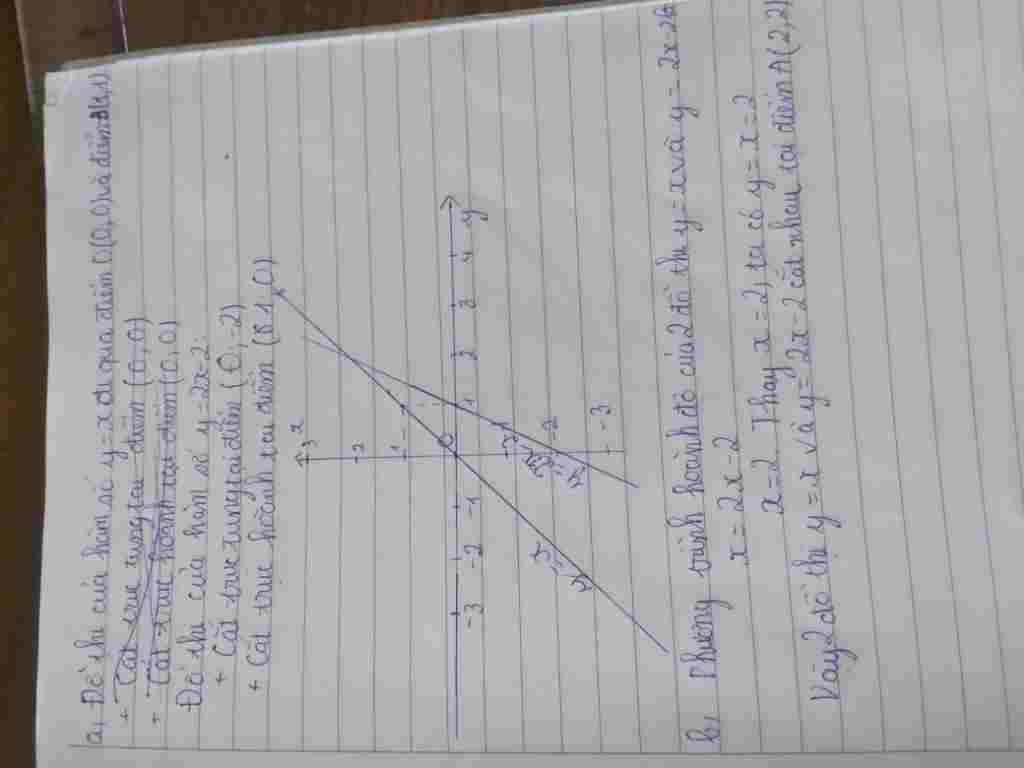 a, Đồ thi của hàm số y = x đi qua điểm O(0,0) và điểm
+ Cắt trục tung tại điểm (0,0)
+ Cắt trục hoành tại điểm (0,0)
Đồ thi của hàm số y = 2x-2:
+ Cắt trục tung tại điểm (0,-2)
+ Cắt trục hoành tại điểm (1,0)
3 x
2
1
-3 -2 -1 0 1 2 3 4 y
-1
-2
-3
y=x
b, Phương trình hoành độ của 2 đồ thị y = x và y = 2x-2 là
x = 2x - 2
x = 2. Thay x = 2, ta có y = x = 2
Vậy 2 đồ thị y = x và y = 2x-2 cắt nhau tại điểm A(2,2)